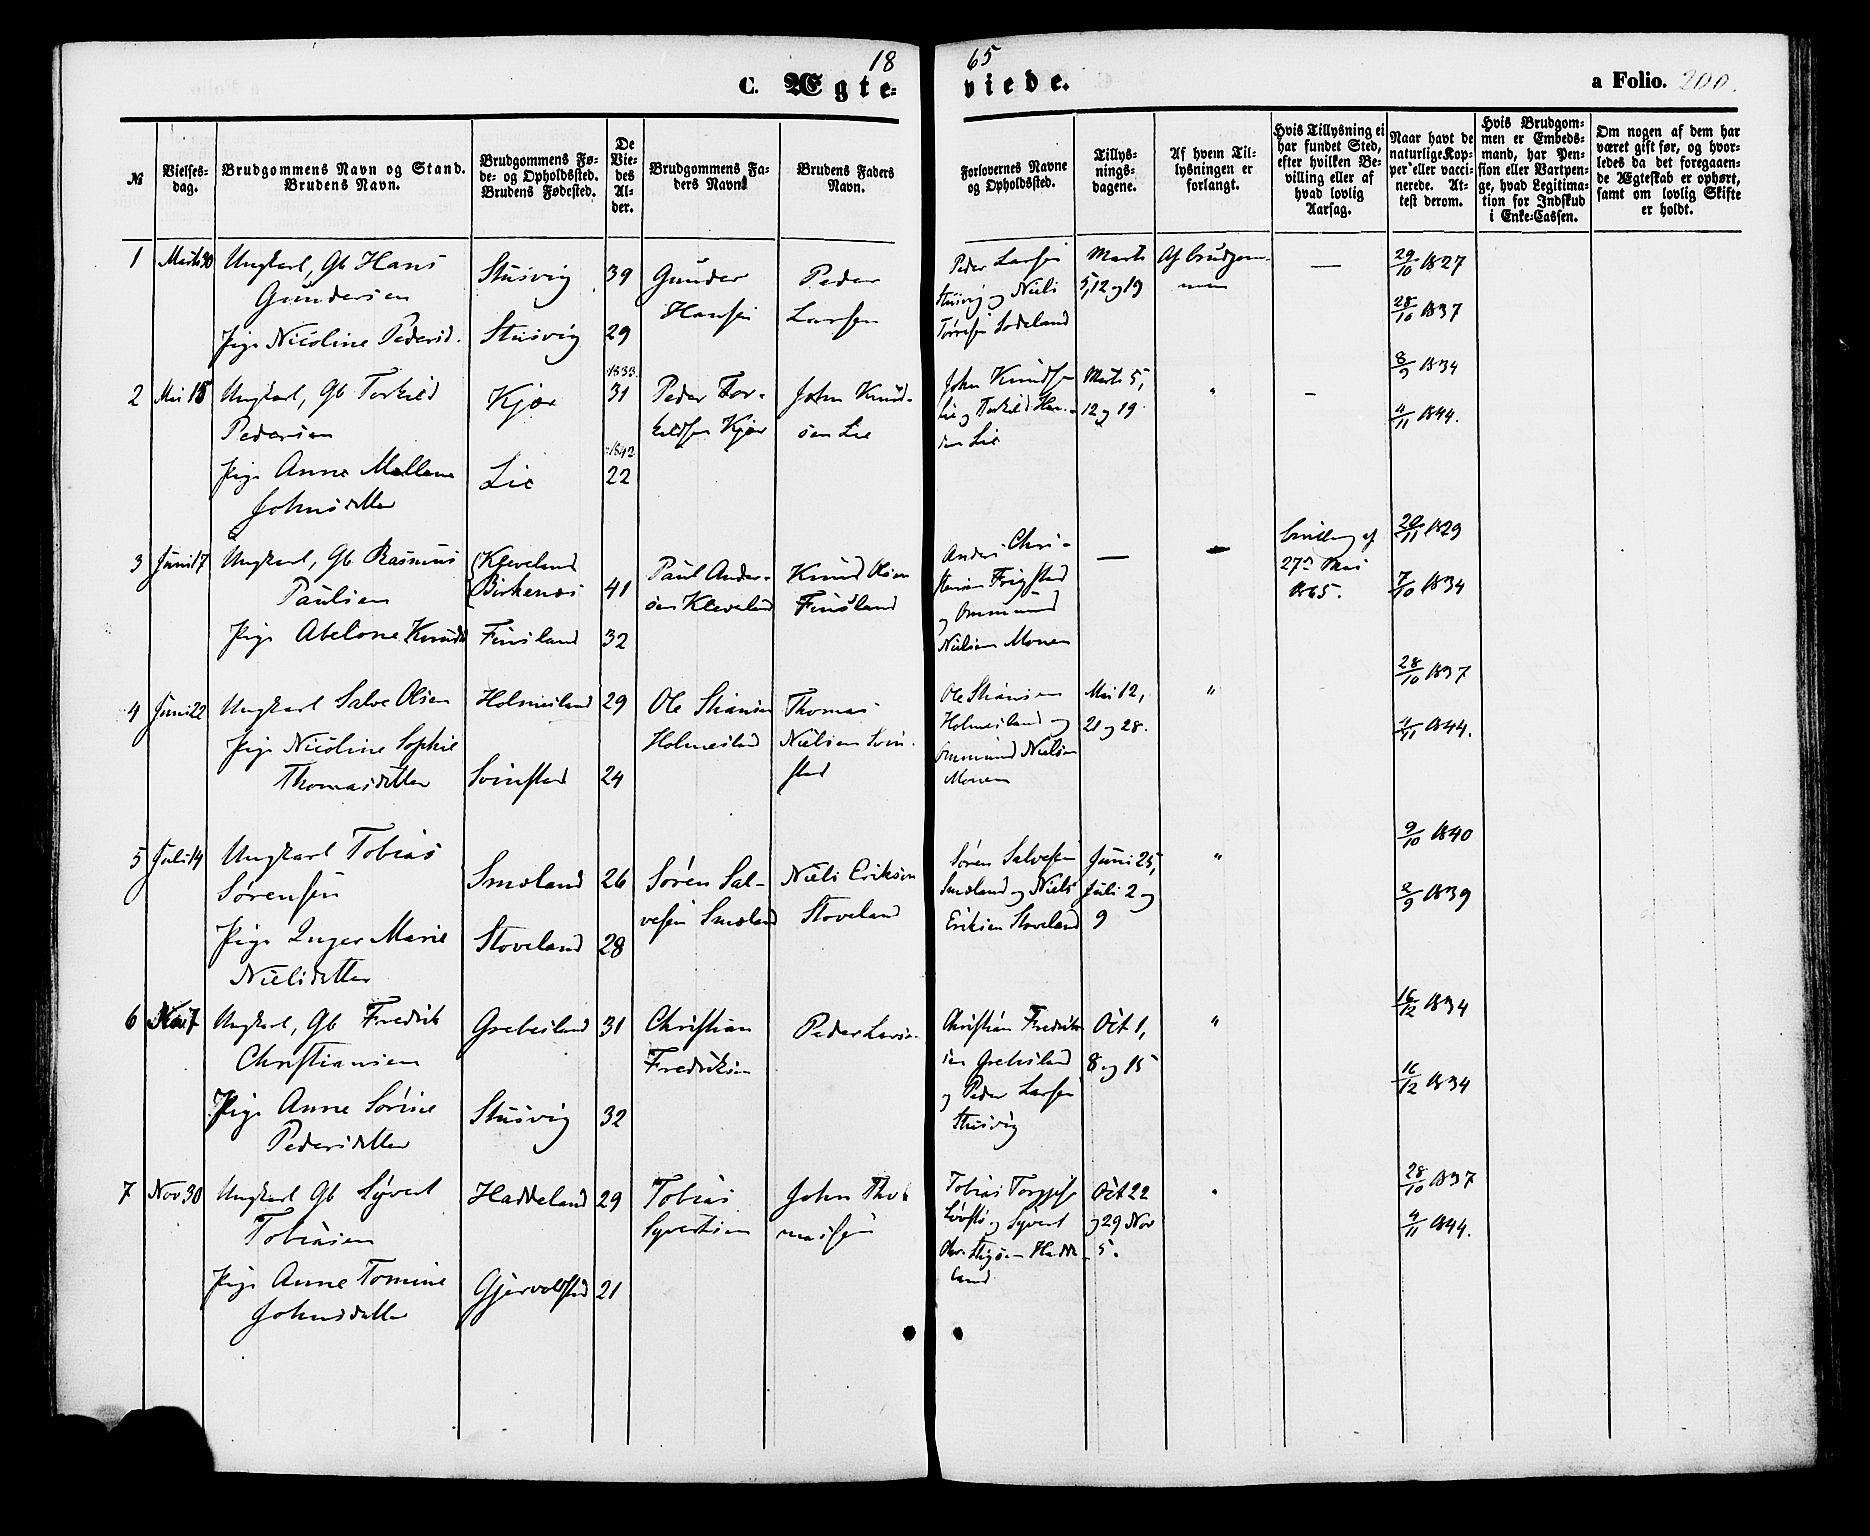 18 65
C. Ægte- viede. a Folio. 200.
№
Vielses-
dag.
Brudgommens Navn og Stand.
Brudens Navn.
Brudgommens Fø-
de- og Opholdssted.
Brudens Fødested.
De
Vie-
des
Al-
der.
Brudgommens Fa-
ders Navn.
Brudens Faders
Navn.
Forlovernes Navne
og Opholdssted.
Tillys-
nings-
dagene.
Af hvem Til-
lysningen er
forlangt.
Hvis Tillysning ei
har fundet Sted,
efter hvilken Be-
villing eller af
hvad lovlig
Aarsag.
Naar havt de
naturlige Kop-
per eller vacci-
nerede. At-
test derom.
Hvis Brudgom-
men er Embeds-
mand, har Pen-
sion eller Vartpen-
ge, hvad Legitima-
tion for Indskud
i Enke-Cassen.
Om nogen af dem har
været gift før, og hvor-
ledes da det foregaaen-
de Ægteskab er ophørt,
samt om lovlig Skifte
er holdt.
1 Marts 30 Ungkarl, Gb Hans
Gundersen
Stusvig 39
Gunder
Hansen
Peder
Larsen
Peder Larsen
Stusvig og Niels
Tørresen Lodeland
Marts
5, 12 og 19
Af Brudgom-
men
—
29/10 1827
Pige Nicoline Pedersd.
Stusvig 29
28/10 1837
2 Mai 18 Ungkarl, Gb Torkild
Pedersen
Kjær
1833.
31
Peder Tor-
kildsen Kjær
John Knud-
sen Lie
John Knudsen
Lie og Torkild Han-
sen Lie
Marts 5,
12 og 19
"
–
8/9 1834
Pige Anne Mallene
Johnsdatter
Lie
1842
22
4/11 1844.
3 Juni 17 Ungkarl, Gb Rasmus
Paulsen
Kleveland
Birkenæs
41
Paul Ander-
sen Kleveland
Knud Olsen
Finsland
Anders Chri-
stensen Frigstad
og Ommund
Nielsen Monen
—
Bevilling af
27de Mai
1865.
20/11 1829
Pige Abelone Knudsd
Finsland 32
7/10 1834
4 Juni 22 Ungkarl Salve Olsen
Holmesland 29
Ole
Holmesland
Thomas
Nielsen Svin-
stad
Ole
Holmesland og
Ommund Nielsen
Monen
Mai 12,
21 og 28.
"
28/10 1837
Pige Nicoline Sophie
Thomasdatter
Svinstad 24
4/11 1844.
5 Juli 14 Ungkarl Tobias
Sørensen
Smæland 26
Søren Sal-
vesen Smæland
Niels Eriksen
Stoveland
Søren Salvesen
Smæland og Niels
Eriksen Stoveland
Juni 25,
Juli 2 og
9
"
9/10 1840
Pige Inger Marie
Nielsdatter
Stoveland 28
2/9 1839
6 Nov 7 Ungkarl, Gb Fredrik
Christiansen
Grebesland 31
Christian
Fredriksen
Peder Larsen
Christian Fredrik-
sen Grebesland
og Peder Larsen
Stusvig
Oct 1,
8 og 15
"
16/12 1834
Pige Anne Sørine
Pedersdatter
Stusvig 32
16/12 1834
7 Nov 30 Ungkarl Gb Syvert
Tobiasen
Haddeland 29
Tobias
Syvertsen
John Tho-
massen
Tobias
og Syvert
Hadde-
land
Oct 22
og 29 Nov
5.
"
28/10 1837
Pige Anne Tomine
Johnsdatter
Gjervoldstad 21
4/11 1844.